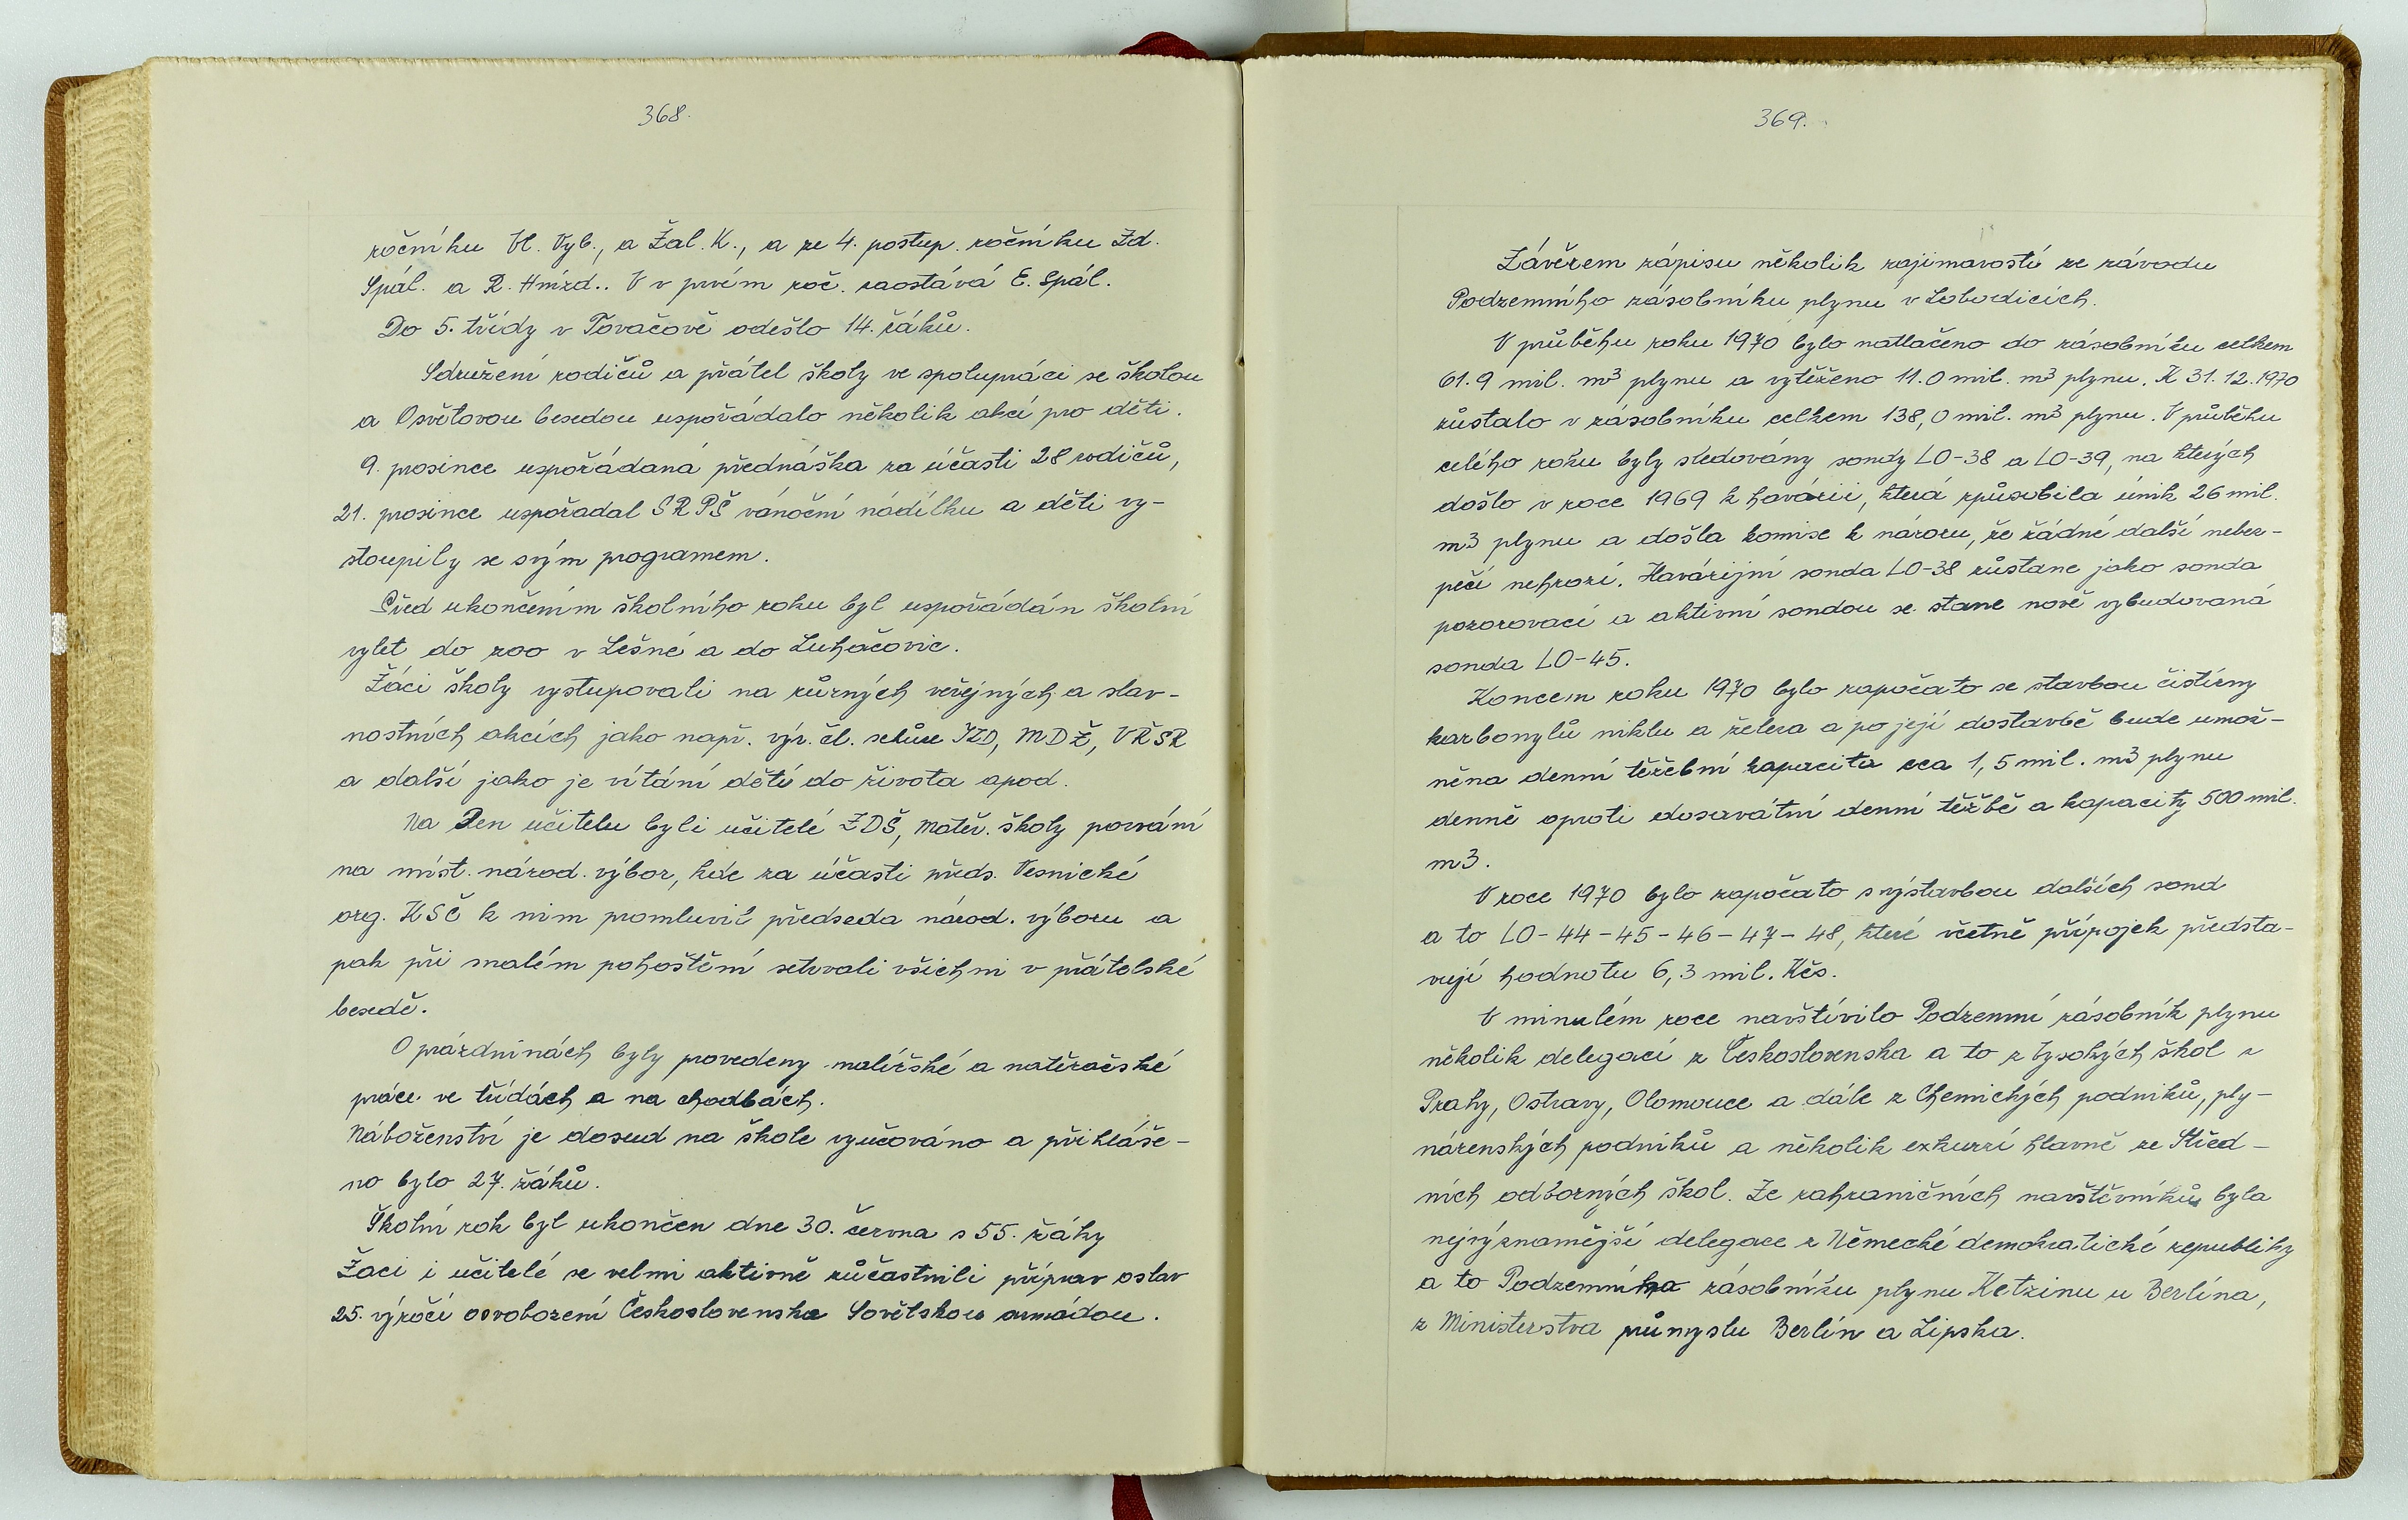 368.
ročníku Vl. Vyb., a Žal. K., a ze 4. postup. ročníku Zd.
Spál. a R. Hmízd.. V v prvém roč. zaostává E. Spál.
Do 5. třídy v Tovačově odešlo 14. žáků.
Sdružení rodičů a přátel školy ve spolupráci se školou
a Osvětovou besedou uspořádalo několik akcí pro děti.
9. prosince uspořádaná přednáška za účasti 28 rodičů,
21. prosince uspořadal SRPŠ vánoční nádílku a děti vy-
stoupily se svým programem.
Před ukončením školního roku byl uspořádán školní
vylet do zoo v Lešné a do Luhačovic.
Žáci školy vystupovali na různých veřejných a slav-
nostních akcích jako např. výr. čl. schůze JZD, MDŽ, VŘSR
a další jako je vítání dětí do života apod.
Na Den učitelu byli učitelé ZDŠ, mateř. školy pozváni
na míst. národ. výbor, kde za účasti předs. Vesnické
org. KSČ k nim promluvil předseda národ. výboru a
pak při malém pohoštění setrvali všichni v přátelské
besedě.
O prázdninách byly provedeny malířské a natěračské
práce ve třídách a na chodbách.
Náboženství je dosud na škole vyučováno a přihláše-
no bylo 27. žáků.
Školní rok byl ukončen dne 30. června s 55. žáky
Žaci i učitelé se velmi aktivně zůčastnili příprav oslav
25. výročí osvobození Československa Sovětskou armádou.
369.
Závěrem zápisu několik zajimavostí ze závodu
Podzemního zásobníku plynu v Lobodicích.
V průběhu roku 1970 bylo natlačeno do zásobníku celkem
61.9 mil. m3 plynu a vytěženo 11.0 mil. m3 plynu. K 31.12.1970
zůstalo v zásobníku celkem 138,0 mil. m3 plynu. V průběhu
celého roku byly sledovány sondy LO-38 a LO-39, na kterých
došlo v roce 1969 k havárii, která způsobila únik 26 mil.
m3 plynu a došla komise k názoru, že žádné další nebez-
pečí nehrozí. Havárijní sonda LO-38 zůstane jako sonda
pozorovací a aktivní sondou se stane nově vybudovaná
sonda LO-45.
Koncem roku 1970 bylo započato se stavbou čistírny
karbonylů niklu a železa a po její dostavbě bude umož-
něna denní těžební kapacita cca 1,5 mil. m3 plynu
denně oproti dosavátní denní těžbě a kapacity 500 mil.
m3.
V roce 1970 bylo započato s výstavbou dalších sond
a to LO-44-45-46-47-48, které včetně přípojek předsta-
vují hodnotu 6,3 mil. Kčs.
V minulém roce navštívilo Podzemní zásobník plynu
několik delegací z Československa a to z Vysokých škol z
Prahy, Ostravy, Olomouce a dále z Chemických podniků, ply-
nárenských podniků a několik exkurzí hlavně ze Střed-
ních odborných škol. Ze zahraničních navštěvníků byla
nejvýznamější delegace z Německé demokratické republiky
a to Podzemního zásobníku plynu Ketzinu u Berlína,
z Ministerstva průmyslu Berlín a Lipska.